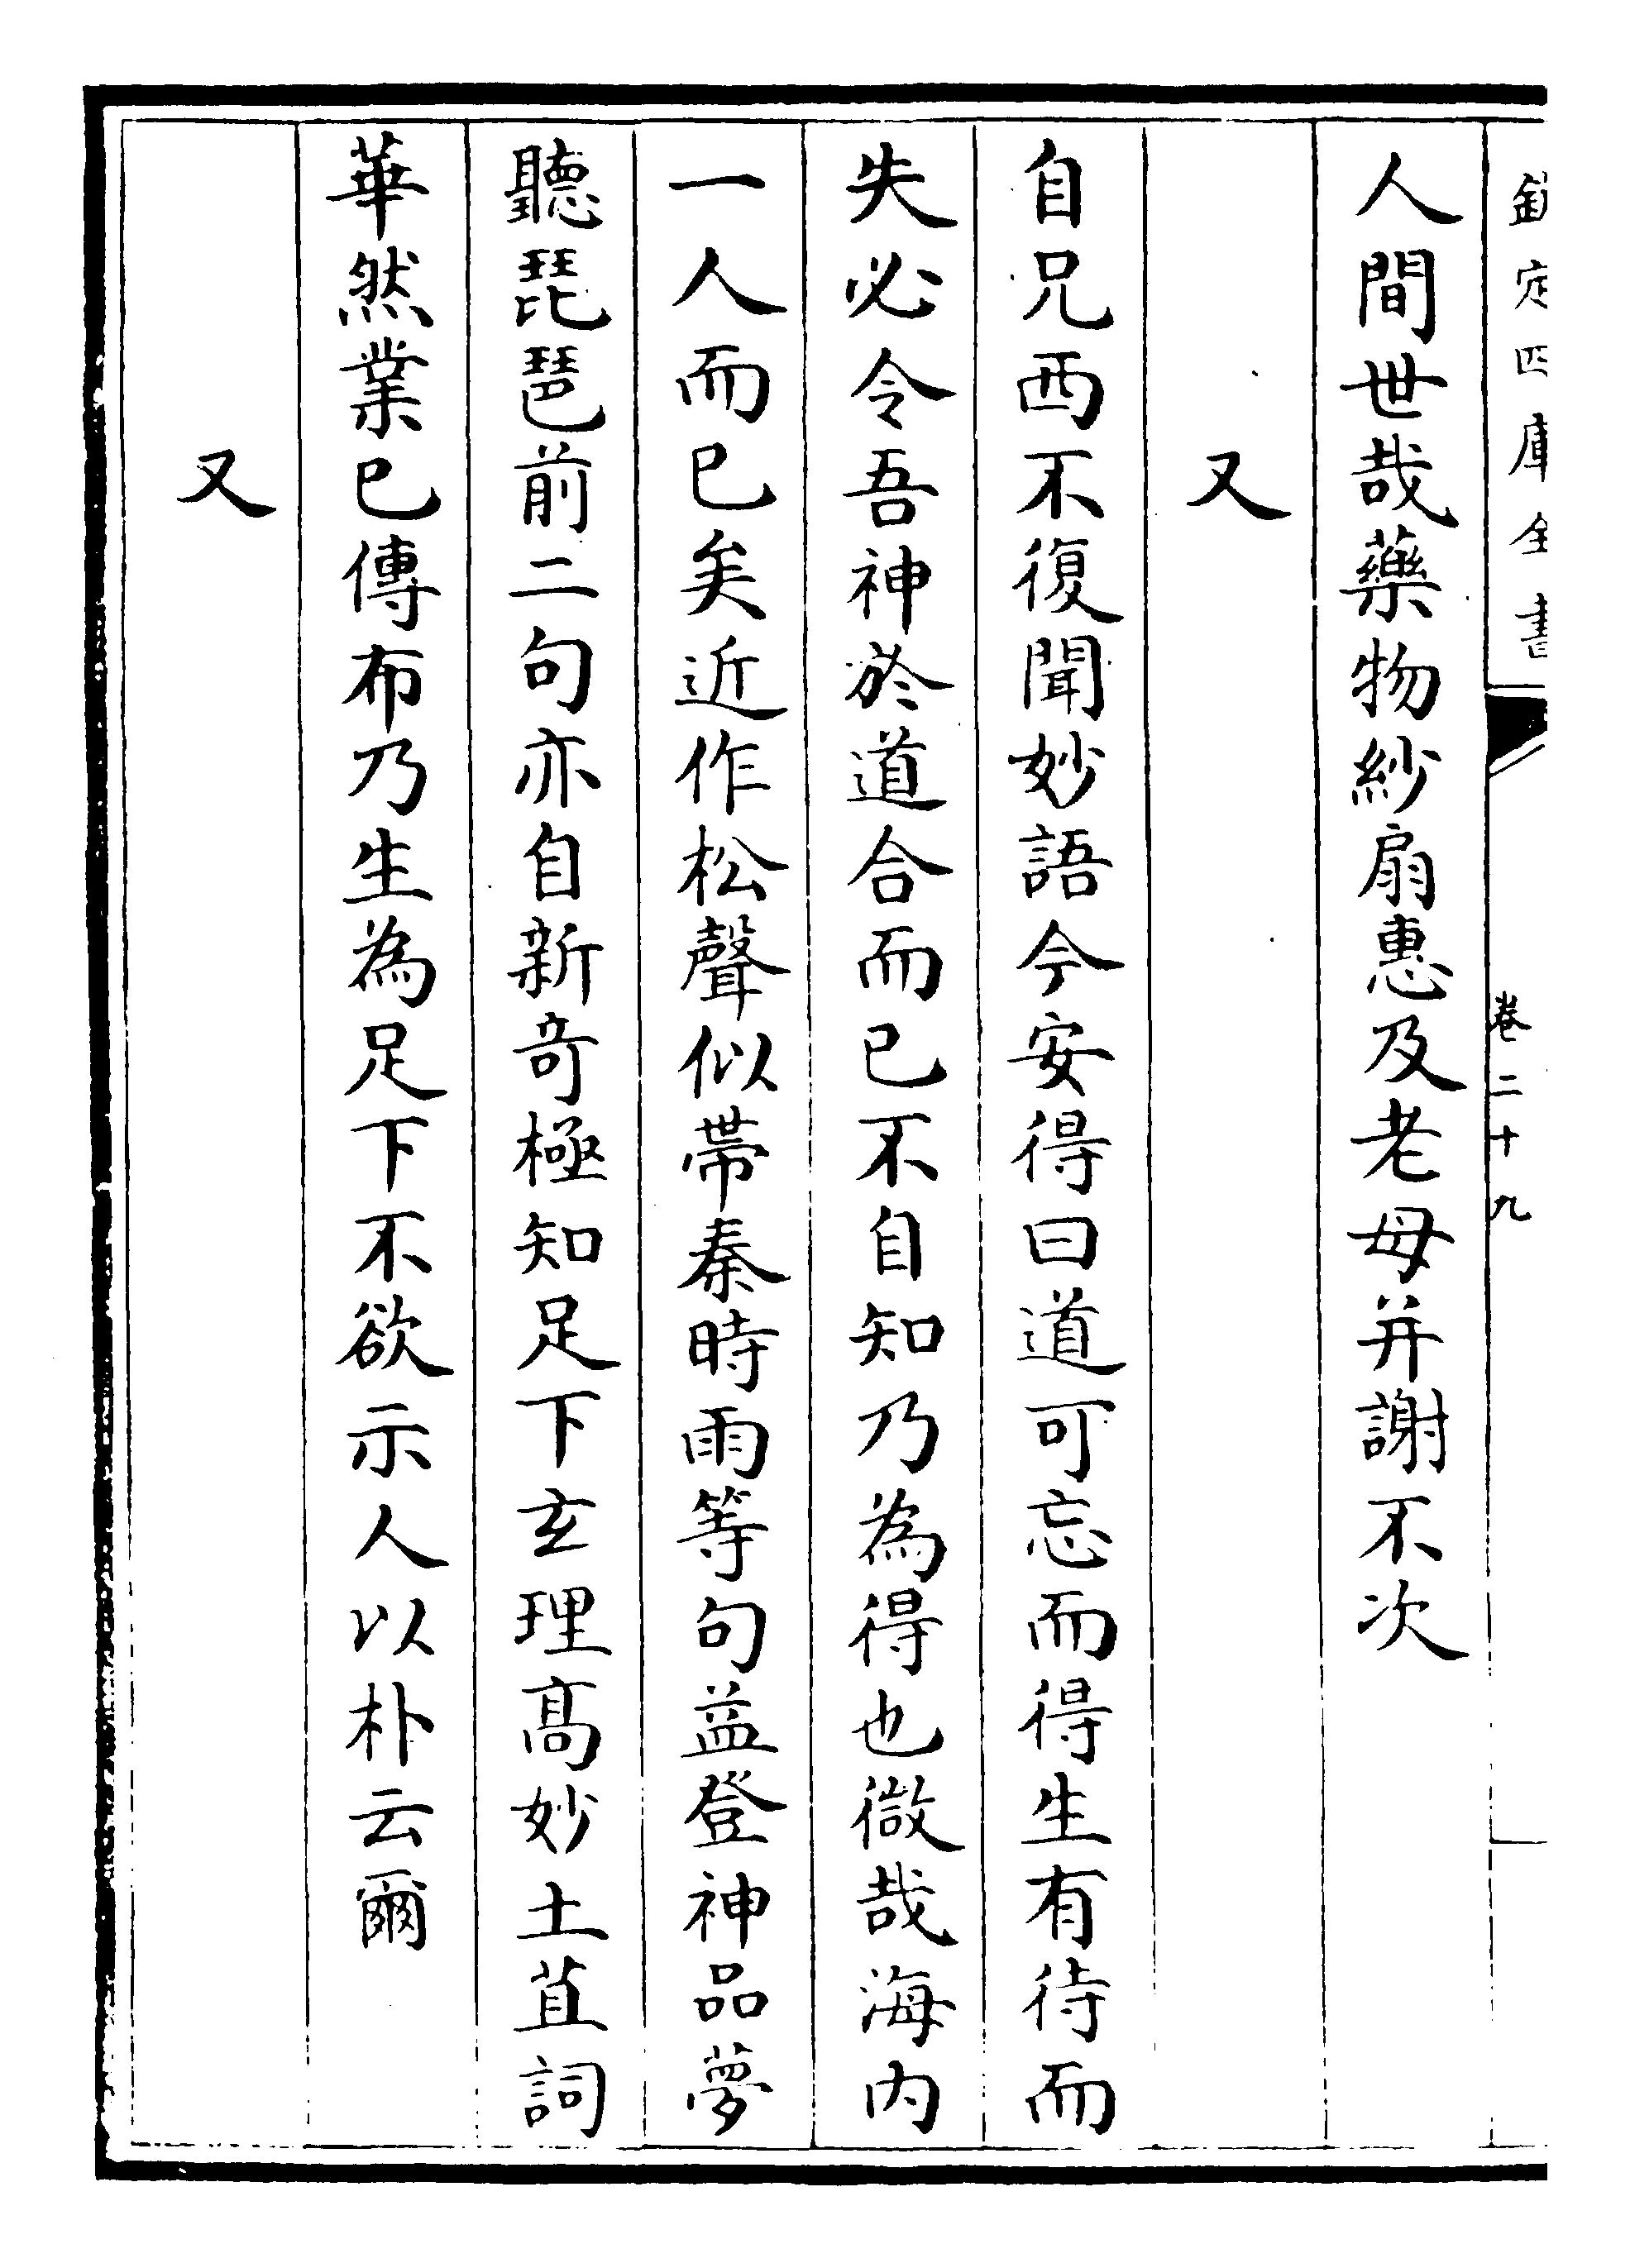 欽定四庫全書
卷二十九
人間世哉藥物紗扇惠及老母并謝不次
又
自兄西不復聞妙語今安得曰道可忘而得生有待而
失必令吾神於道合而已不自知乃為得也微哉海内
一人而已矣近作松聲似帶秦時雨等句益登神品夢
聽琵琶前二句亦自新奇極知足下玄理髙妙土苴詞
華然業已傳布乃生為足下不欲示人以朴云爾
又